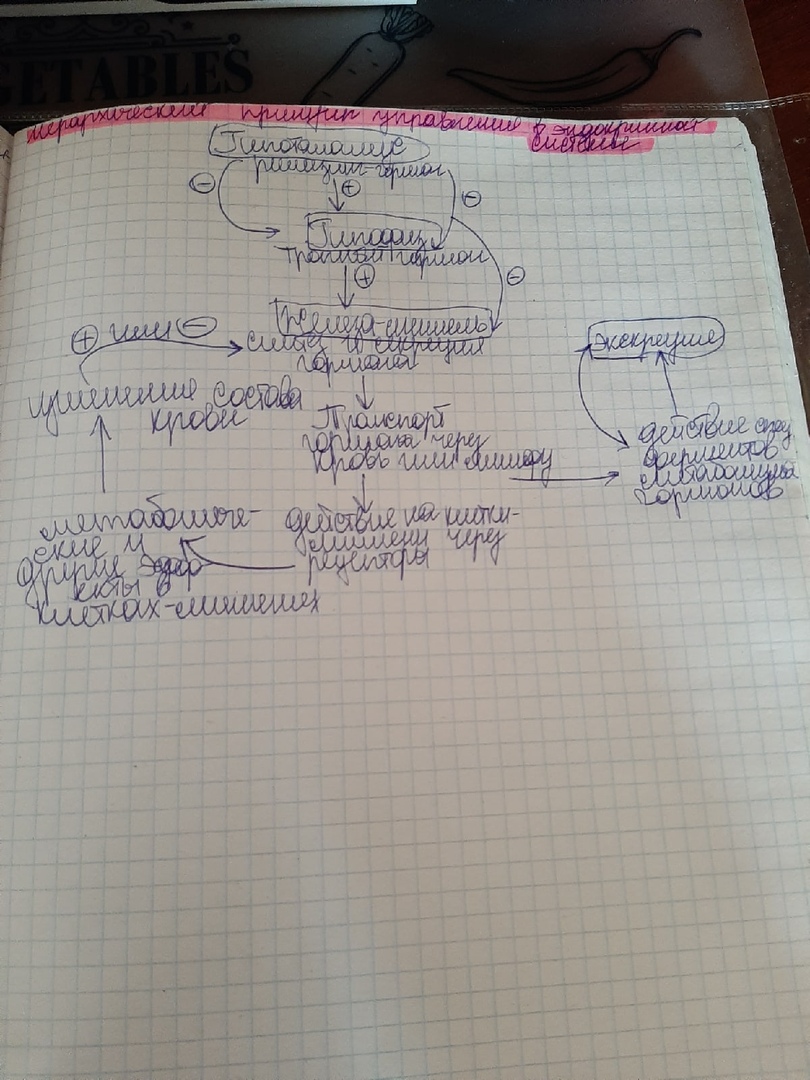 GETABLES
Иерархический принцип управления в эндокринной
системе
Гипоталамус
рилизинг гормон
⊖ ⊕ ⊖
Гипофиз
тропный гормон
⊕ ⊖
Железа-мишень
синтез и секреция
гормона
⊕ или ⊖
изменение состава
крови
Транспорт
гормона через
кровь или лимфу
Экскреция
действие
ферментов
гормонов
действие на клетки-
мишени через
рецепторы
метаболиче-
ские и
другие эффе
кты в
клетках-мишенях